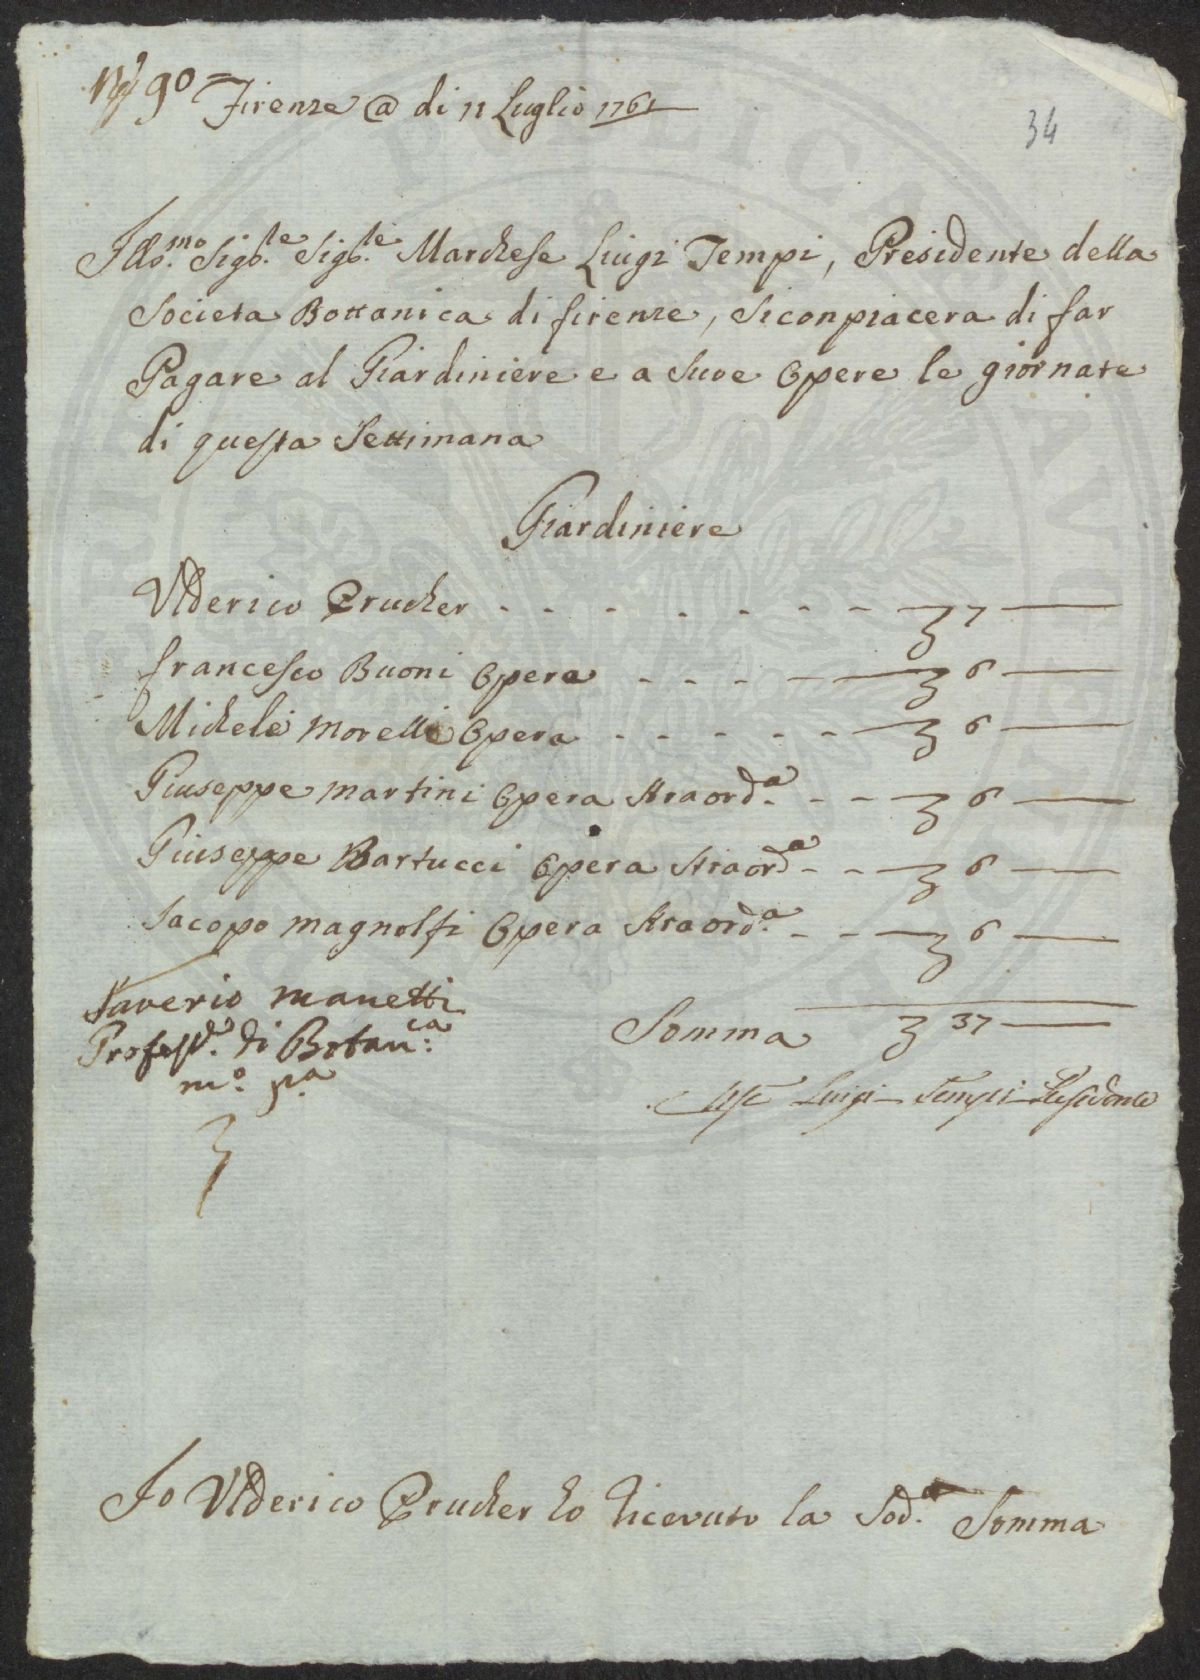 90 Firenze @ di 11 Luglio 1761
34
Ill.mo Sig.re Sig.re Marchese Luigi Tempi, Presidente della
Societa Bottanica di firenze, si conpiacera di far
Pagare al Giardiniere e a Suoe Opere le giornate
di questa Settimana
Giardiniere
Ulderico Prucher - - - - - - - 7 —
francesco Buoni Opera - - - - 6 —
Michele Morelli Opera - - - - - 6 —
Giuseppe Martini Opera straord.a - - 6 —
Giuseppe Bartucci Opera straord.a - - 6 —
Jacopo Magnolfi Opera straord.a - - 6 —
Saverio Manetti
Profess.e di Botan.ca
m.o p.a
Somma 37 —
Luigi Tempi Presidente
Io Ulderico Prucher ho ricevuto la Sod.a Somma